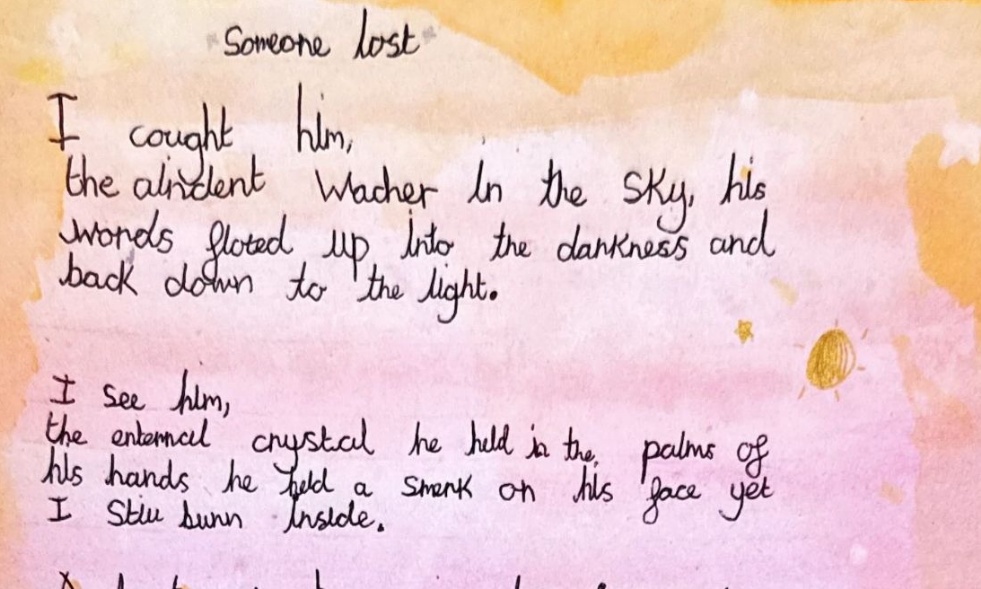 Someone lost
I cought him,
the Wacher In the sky, his
words floted up into the darkness and
back down to the light.
I see him,
the crystal he held in the, palms of
his hands he held a smerk on his face yet
I still burn inside.